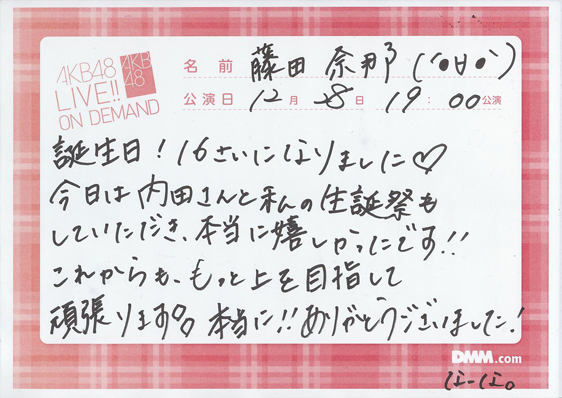 AKB48
LIVE!!
ON DEMAND
AKB
48
名前 藤田 奈那 (´•∀•`)
公演日 12月 28日 19:00公演
誕生日！16さいになりました♡
今日は内田さんと私の生誕祭も
していただき、本当に嬉しかったです!!
これからも、もっと上を目指して
頑張ります 本当に!!ありがとうございました!
DMM.com
なーな。